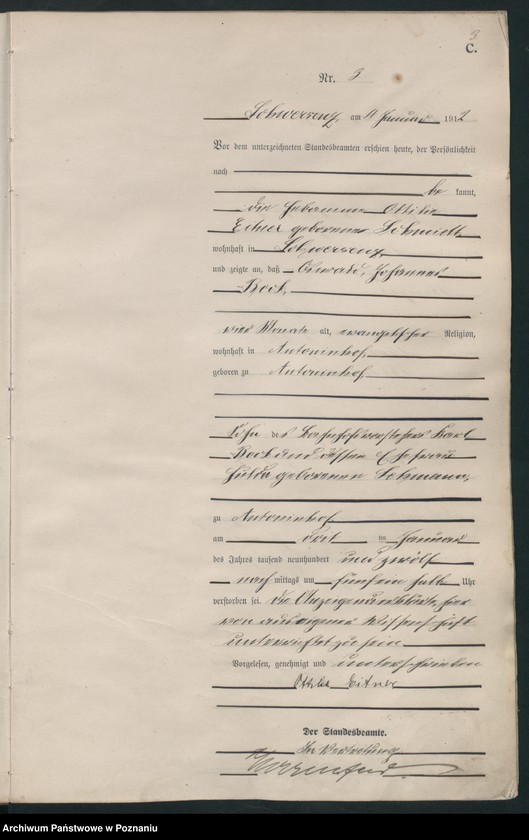 3
C.
Nr. 3
Schwersenz, am 4 Januar 1912
Vor dem unterzeichneten Standesbeamten erschien heute, der Persönlichkeit
nach
be kannt,
die Hebamme Ottilie
geborene Schmidt
wohnhaft in Schwersenz,
und zeigte an, daß Oswald, Johannes
Bock,
vier Monate alt, evangelischer Religion,
wohnhaft in Antoninhof,
geboren zu Antoninhof,
Sohn des Bahnhofsvorstehers Karl
Bock und dessen Ehefrau
Hulda geborenen Lehmann,
zu Antoninhof
am drei ten Januar
des Jahres tausend neunhundert und zwölf
nach mittags um fünf ein halb Uhr
verstorben sei. Die Anzeigende erklärte, hier
von aus eigener Wissenschaft
unterrichtet zu sein
Vorgelesen, genehmigt und unterschrieben
Ottilie Eitner
Der Standesbeamte.
In Vertretung
Archiwum Państwowe w Poznaniu